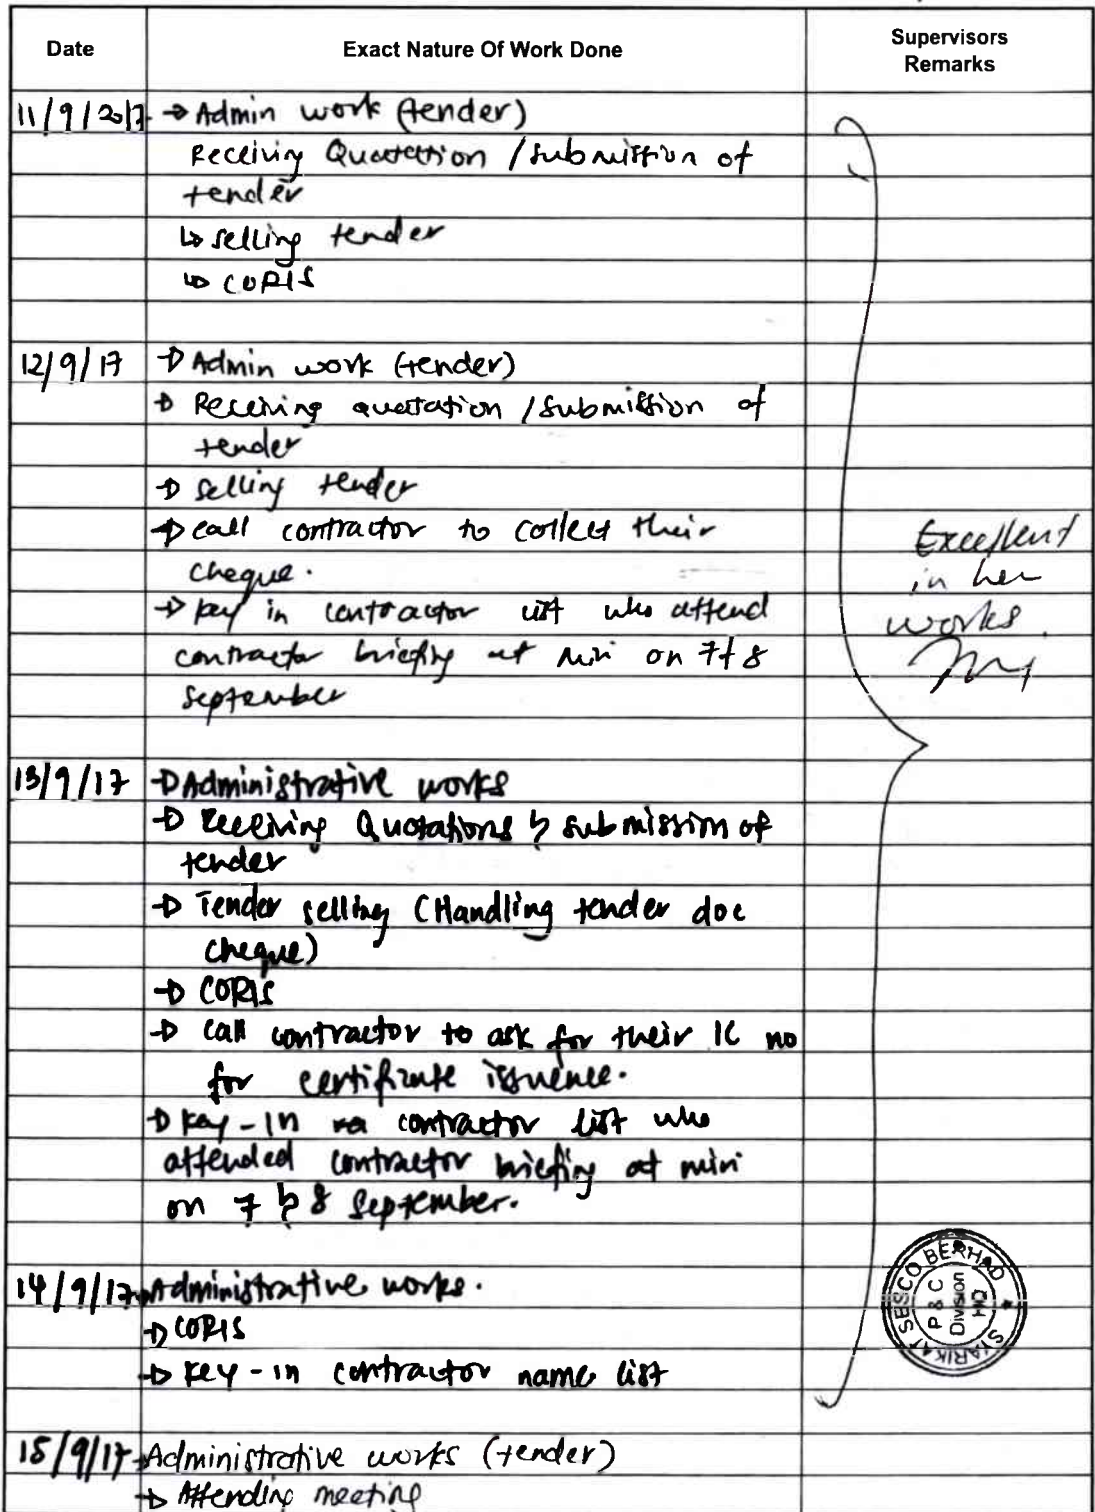 Date Exact Nature Of Work Done Supervisors Remarks
11/9/2017 → Admin work (tender)
Receiving Quotation / submission of
tender
↳ selling tender
↳ CORIS
12/9/17 → Admin work (tender)
→ Receiving quotation / submission of
tender
→ selling tender
→ call contractor to collect their
cheque.
→ key in contractor list who attend
contractor briefing at miri on 7 & 8
September
Excellent
in her
works.
13/9/17 → Administrative works
→ Receiving Quotations & submission of
tender
→ Tender selling (Handling tender doc
cheque)
→ CORIS
→ call contractor to ask for their IC no
for certificate issuence.
→ key-in contractor list who
attended contractor briefing at miri
on 7 & 8 September.
14/9/17 → Administrative works.
→ CORIS
→ key-in contractor name list
SYARIKAT SESCO BERHAD
P & C
Division
HQ
15/9/17 → Administrative works (tender)
→ Attending meeting